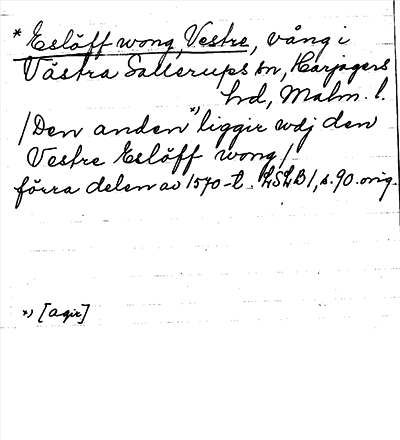 * Eslöff wong, Vestre, vång i
Västra Sallerups sn, Harjagers
hd, Malm. l.
/Den anden *) liggir wdj den
Vestre Eslöff wong/
förra delen av 1570-t. LSLB1, s. 90. orig.
*) [agir]